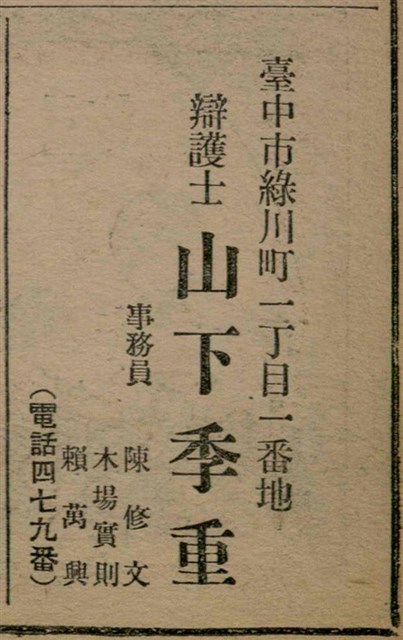 臺中市綠川町一丁目一番地
辯護士 山下季重
事務員
陳修文
木場實則
賴萬興
(電話四七九番)